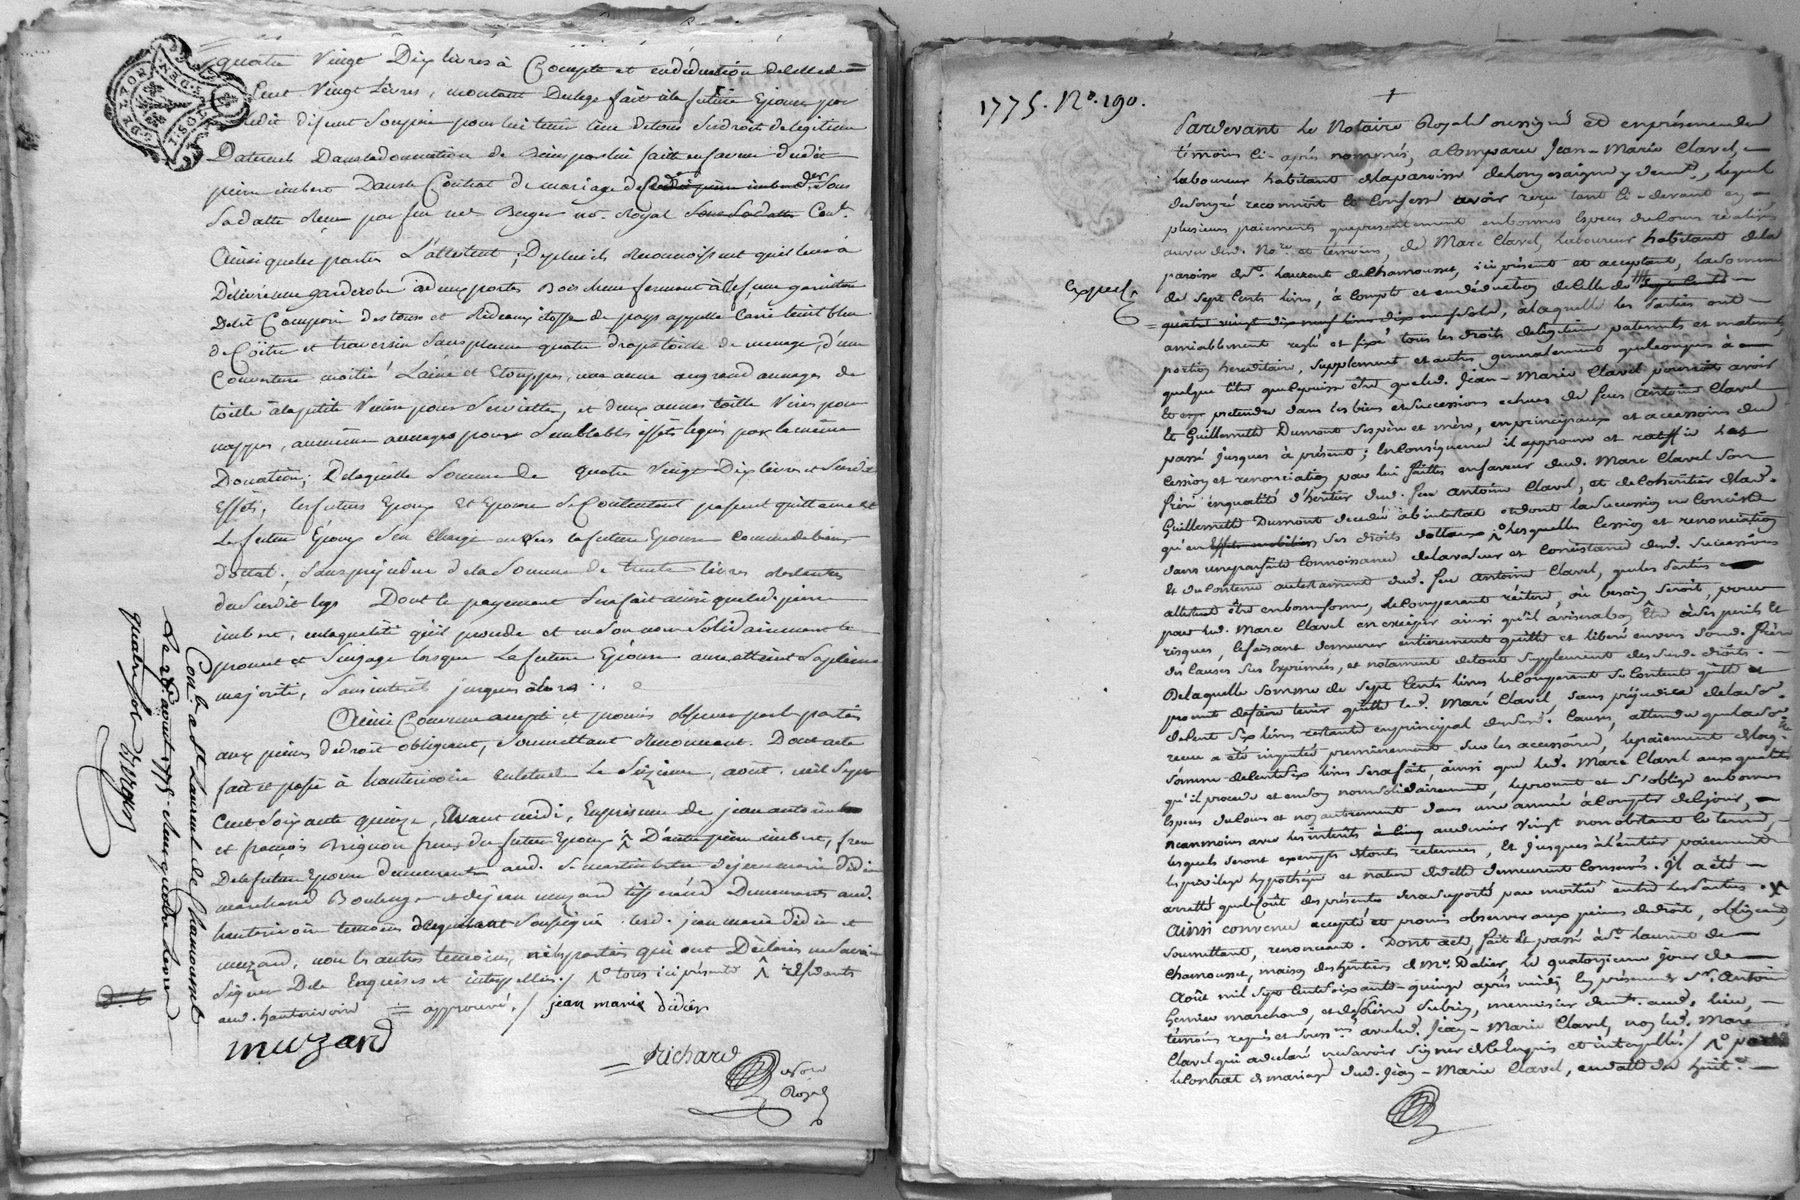 G. DE LYON
2. S. DEN.
ISOLS
quatre Vingt Dix livres à Compte et endéduction decelle de
Cent Vingt Livres, montant Dulegs fait àla future Epouse par
ledit défunt pour lui tenir lieu detous Sesdroits delégitime
Paternels Dansladonnation de Biens parlui fait enfaveur dudit
pierre imbert Dansle Contrat de mariage de
Sadatte Reçu par feu me Berger no. Royal Cont.
Ainsi queles parties L'attestent, Deplus ils Reconnoissent quilleurà
Délivré une garderobe àdeux portes Bois chene fermant àclef, une garniture
Delit Composée destours et Rideaux étoffe de pays appellé Cadis teint bleu
de Coitre et traversin Sansplume quatre draps toille de menage, d'une
Couverture moitié Laine et Etouppes, une aune augrand aunages de
toille àlapetite Venise pour Serviettes, et deux aunes toille Venise pour
nappes, aumême aunages pour Semblables effets legués par lamême
Donation; Delaquelle Somme de quatre Vingt Dix livres et Susdits
Effets, lesfuturs Epoux Et Epouse Secontentent passent quittance et
Le futur Epoux s'en Charge envers lafuture Epouse comme debiens
dottal. Sans préjudice dela Somme de trente livres restantes
duSusdit legs Dont le payement Serafait ainsi queled. pierre
imbert, enlaqualité qu'il procede et enson nom Solidairement le
promet et S'engage lorsque Lafuture Epouse aura atteint Sapleine
majorité, Sans intérêt jusques alors.
Ainsi Convenu accepté et promis observer par les parties
aux peines dedroit obligeant, Soumettant Renonceant. Dont acte
fait et passé à hauterivoire enletude Le Seizieme août mil Sept
Cent Soixante quinze, Avant midi, En présence de jean antoine
et françois Brignon freres du futur Epoux D'autre pierre imbert, frere
Delafuture Epouse demeurants aud. St martin lestra dejean marie didier
marchand Boulenger et dejean muzard tisserand Demeurants aud.
hauterivoire temoins Requis Soussignés lesd. jean marie didier et
muzard, non les autres temoins, niles parties qui ont Déclarés nesavoir
Signer De ce Enquises et interpellées / tous ici présents Residants
aud. hauterivoire approuvé / jean marie didier
muzard
Richard
Nore
Royal
Con.lé a St Laurent de Chamousset
Le 28 août 1775. Reçu quatre livres
quatre sols Dervgers
1775. No. 190.
Pardevant Le Notaire Royal Soussigné et enprésence des
témoins ci-après nommés, a Comparu Jean-Marie Clavel,
laboureur habitant delaparoisse delongessaigne y demt., lequel
desongré reconnoit et Confesse avoir reçu tant Ci-devant en
plusieurs paiements queprésentement enbonnes Especes deCours réalisés
auvu dud. No.re et témoins, de Marc Clavel, laboureur habitant dela
paroisse de St. Laurent deChamousset, ici présent et acceptant, lasomme
expedié
de Sept Cents livres, à Compte et endéduction deCelle de
quatre vingt dix neuf livres dix neuf sols, àlaquelle les Parties ont
amiablement reglé et fixé tous les droits delegitime paternels et maternels
portion héréditaire, Supplement et autres generalement quelconques à
quelque titre quecepuisse être queled. Jean-Marie Clavel pourroit avoir
et prétendre dans les biens et successions echues de feus Antoine Clavel
et Guillemette Dumont Sespère et mère, enprincipaux et accessoires du
passé jusques à présent; En Conséquence il approuve et ratiffie les
Cession et renonciation par lui faittes enfaveur dud. Marc Clavel Son
frère enqualité d'héritier dud. feu Antoine Clavel, et deCohéritier delad.
Guillemette Dumont decedée abintestat et dont laSuccession ne Consiste
qu'en Effets mobiliers Ses droits dottaux lesquelles Cession et renonciation
dans uneparfaite Connoissance delavaleur et Consistance desd. Successions
Et duContenu autestament dud. feu Antoine Clavel, queles Parties
attestent être enbonneforme, leComparant réitere, où besoin Seroit, pour
par led. Marc Clavel en exciper ainsi qu'il aviserabon Etre àSes perils Et
risques, lefaisant demeurer entierement quitte et liberé envers Sond. frère
des Causes Sus Exprimées, et notamment detout Supplement desSusd. droits.
Delaquelle Somme de Sept Cents livres leComparant Se Contente quitte et
promet defaire tenir quitte led. Marc Clavel, Sans préjudice delasomme
deCent Six livres restante enprincipal desSusd. Causes, attendu quelaso.e
recue a été imputée premierement Sur les accessoires, lepaiement delaq.
Somme deCent Six livres Serafait, ainsi que led. Marc Clavel auxqualités
qu'il procede et enson nomSolidairement, lepromet et S'oblige enbonnes
Especes deCours et non autrement dans une année à Compter deCejour,
neanmoins avec les intérêts audenier vingt nonobstant le terme,
lesquels Seront exempts detoute retenue, Et jusques àl'entier paiement
lesprivilege hypothèque et nature dedette demeurent Conservés. Il a été
arretté queleCoût des présentes Sera Supporté par moitié entre lesParties.
Ainsi convenu accepté et promis observer aux peines dedroit, obligeant,
Soumettant, renonceant. Dont acte, fait Et passé à St. Laurent de
Chamousset, maison desheritiers de Me. Dalier, le quatorzieme jour de
Août mil Sept Centsoixante-quinze après midi, En présence de Sr. Antoine
marchand, et de menuisier demt. aud. lieu,
témoins requis et Souss.nés avecled. Jean-Marie Clavel, non led. Marc
Clavel qui adeclaré nesavoir Signer deceEnquis et interpellé /
leContrat de mariage dud. Jean-Marie Clavel, endatte du huit